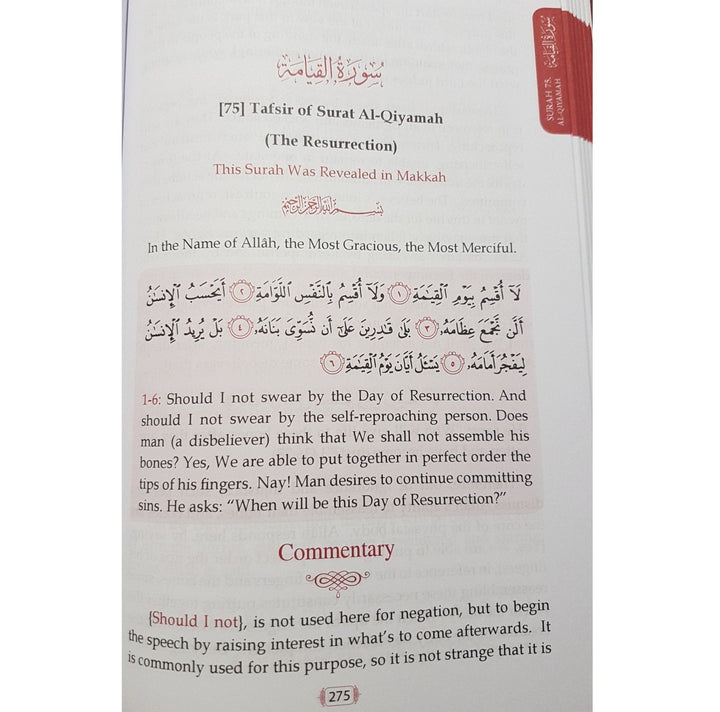 سُورَةُ القِيَامَةِ
SURAH 75.
AL-QIYAMAH
سُورَةُ الْقِيَامَةِ
[75] Tafsir of Surat Al-Qiyamah
(The Resurrection)
This Surah Was Revealed in Makkah
بِسْمِ اللَّهِ الرَّحْمَٰنِ الرَّحِيمِ
In the Name of Allâh, the Most Gracious, the Most Merciful.
لَآ أُقْسِمُ بِيَوْمِ ٱلْقِيَٰمَةِ ﴿١﴾ وَلَآ أُقْسِمُ بِٱلنَّفْسِ ٱللَّوَّامَةِ ﴿٢﴾ أَيَحْسَبُ ٱلْإِنسَٰنُ
أَلَّن نَّجْمَعَ عِظَامَهُۥ ﴿٣﴾ بَلَىٰ قَٰدِرِينَ عَلَىٰٓ أَن نُّسَوِّىَ بَنَانَهُۥ ﴿٤﴾ بَلْ يُرِيدُ ٱلْإِنسَٰنُ
لِيَفْجُرَ أَمَامَهُۥ ﴿٥﴾ يَسْـَٔلُ أَيَّانَ يَوْمُ ٱلْقِيَٰمَةِ ﴿٦﴾
1-6: Should I not swear by the Day of Resurrection. And
should I not swear by the self-reproaching person. Does
man (a disbeliever) think that We shall not assemble his
bones? Yes, We are able to put together in perfect order the
tips of his fingers. Nay! Man desires to continue committing
sins. He asks: “When will be this Day of Resurrection?”
Commentary
{Should I not}, is not used here for negation, but to begin
the speech by raising interest in what's to come afterwards. It
is commonly used for this purpose, so it is not strange that it is
275